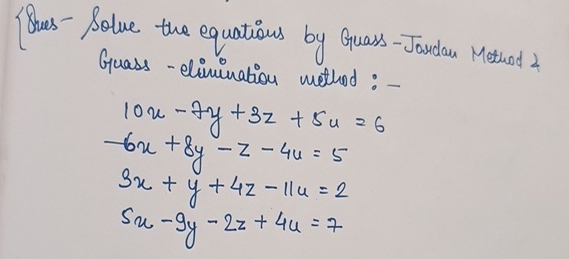 {Ques- Solve the equations by Guass-Jordan Method &
Guass-elimination method :-
10x - 7y + 3z + 5u = 6
-6x + 8y - z - 4u = 5
3x + y + 4z - 11u = 2
5x - 9y - 2z + 4u = 7